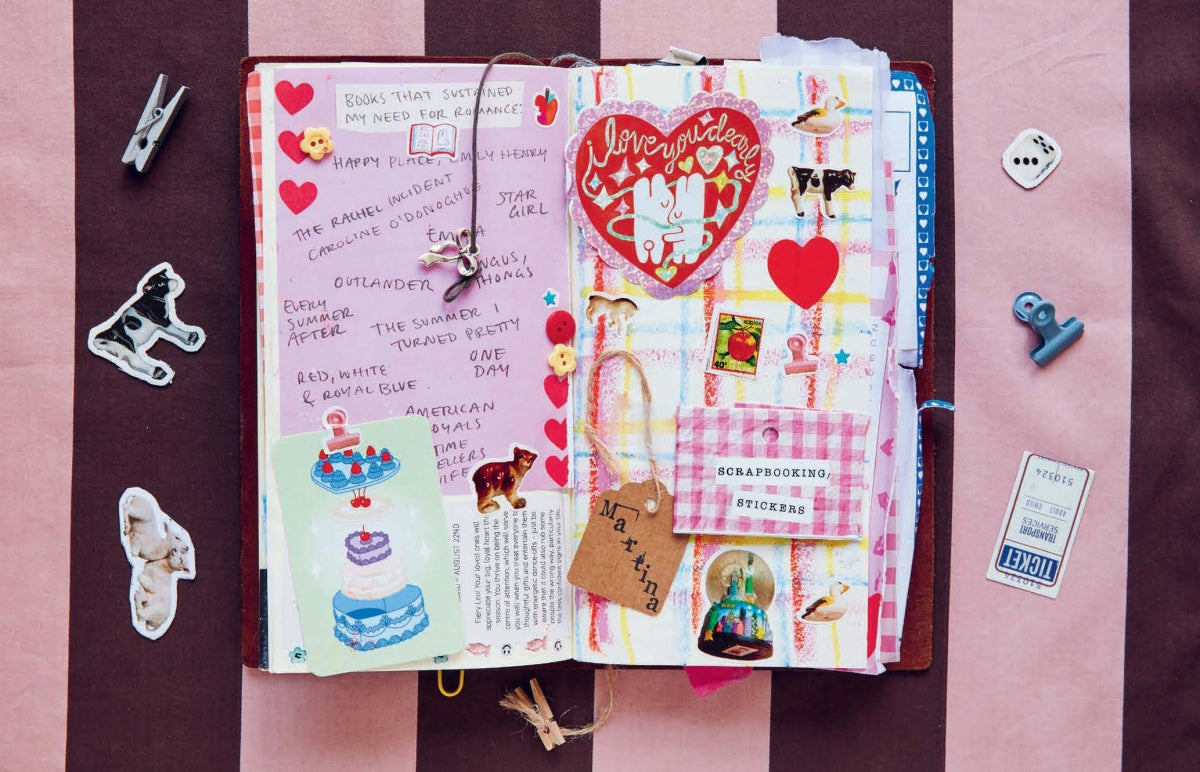 BOOKS THAT SUSTAINED
MY NEED FOR ROMANCE:
HAPPY PLACE, EMILY HENRY
THE RACHEL INCIDENT
CAROLINE O'DONOGHUE
STAR
GIRL
EMMA
OUTLANDER
NGUS,
THONGS
EVERY
SUMMER
AFTER
THE SUMMER I
TURNED PRETTY
ONE
DAY
RED, WHITE
& ROYAL BLUE.
AMERICAN
ROYALS
TIME
ELLERS
WIFE
AUGUST 22ND
Fiery Leo! Your loved ones will
appreciate your big, loyal heart this
season. You thrive on being the
centre of attention, which will serve
you well when you treat everyone to
thoughtful gifts and entertain them
with energetic dance-offs – just be
aware that it could also rub some
people the wrong way, particularly
the less confident signs in your life.
i love you dearly
Martina
SCRAPBOOKING/
STICKERS
510324
ADULT CHILD
TRANSPORT
SERVICES
TICKET
510324